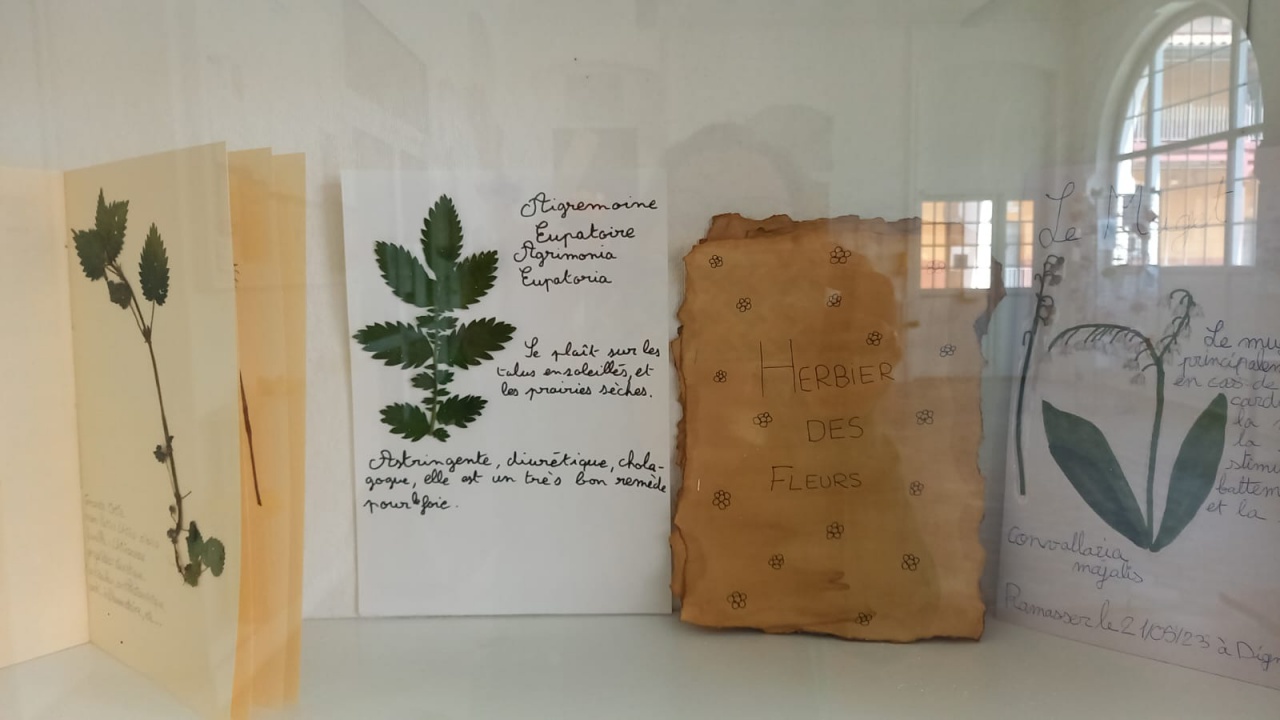 Aigremoine
Eupatoire
Agrimonia
Eupatoria
Se plaît sur les
talus ensoleillés, et
les prairies sèches.
Astringente, diurétique, chola-
gogue, elle est un très bon remède
pour le foie.
HERBIER
DES
FLEURS
Le Muguet
Le mu
principalem
en cas de
card
la
la
stimu
battem
et la
Convallaria
majalis
Ramasser le 21/05/23 à Dign